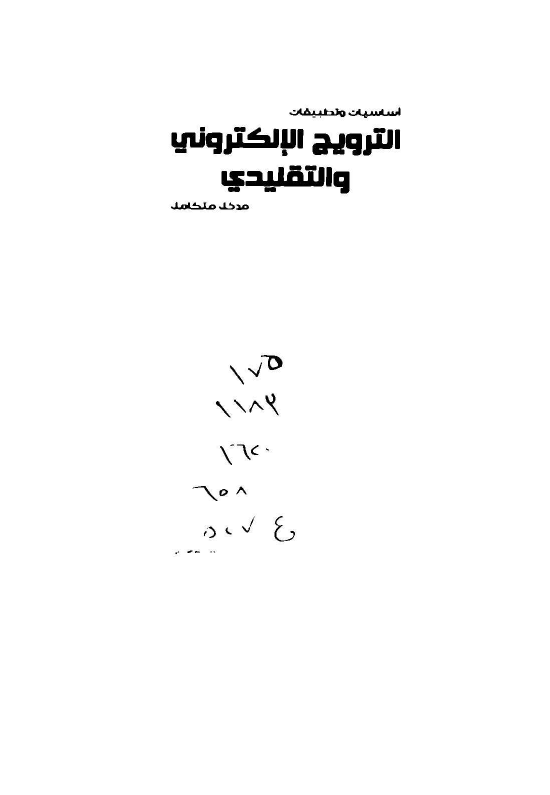 أساسيات وتطبيقات
الترويج الإلكتروني
والتقليدي
مدخل متكامل
١٧٥
١١٨٣